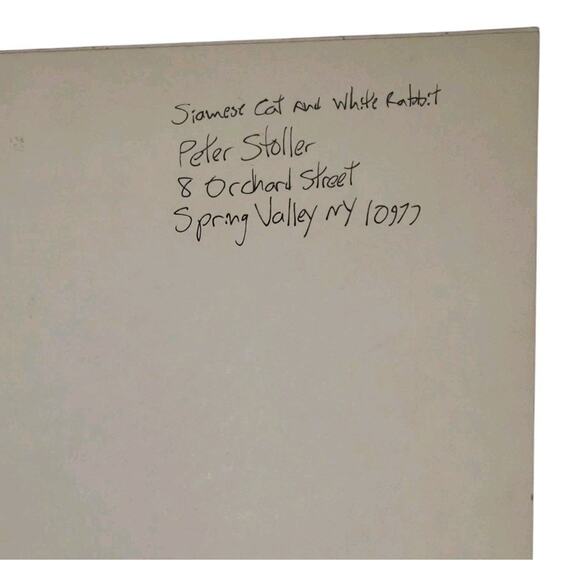 Siamese Cat And White Rabbit
Peter Stoller
8 Orchard Street
Spring Valley NY 10977